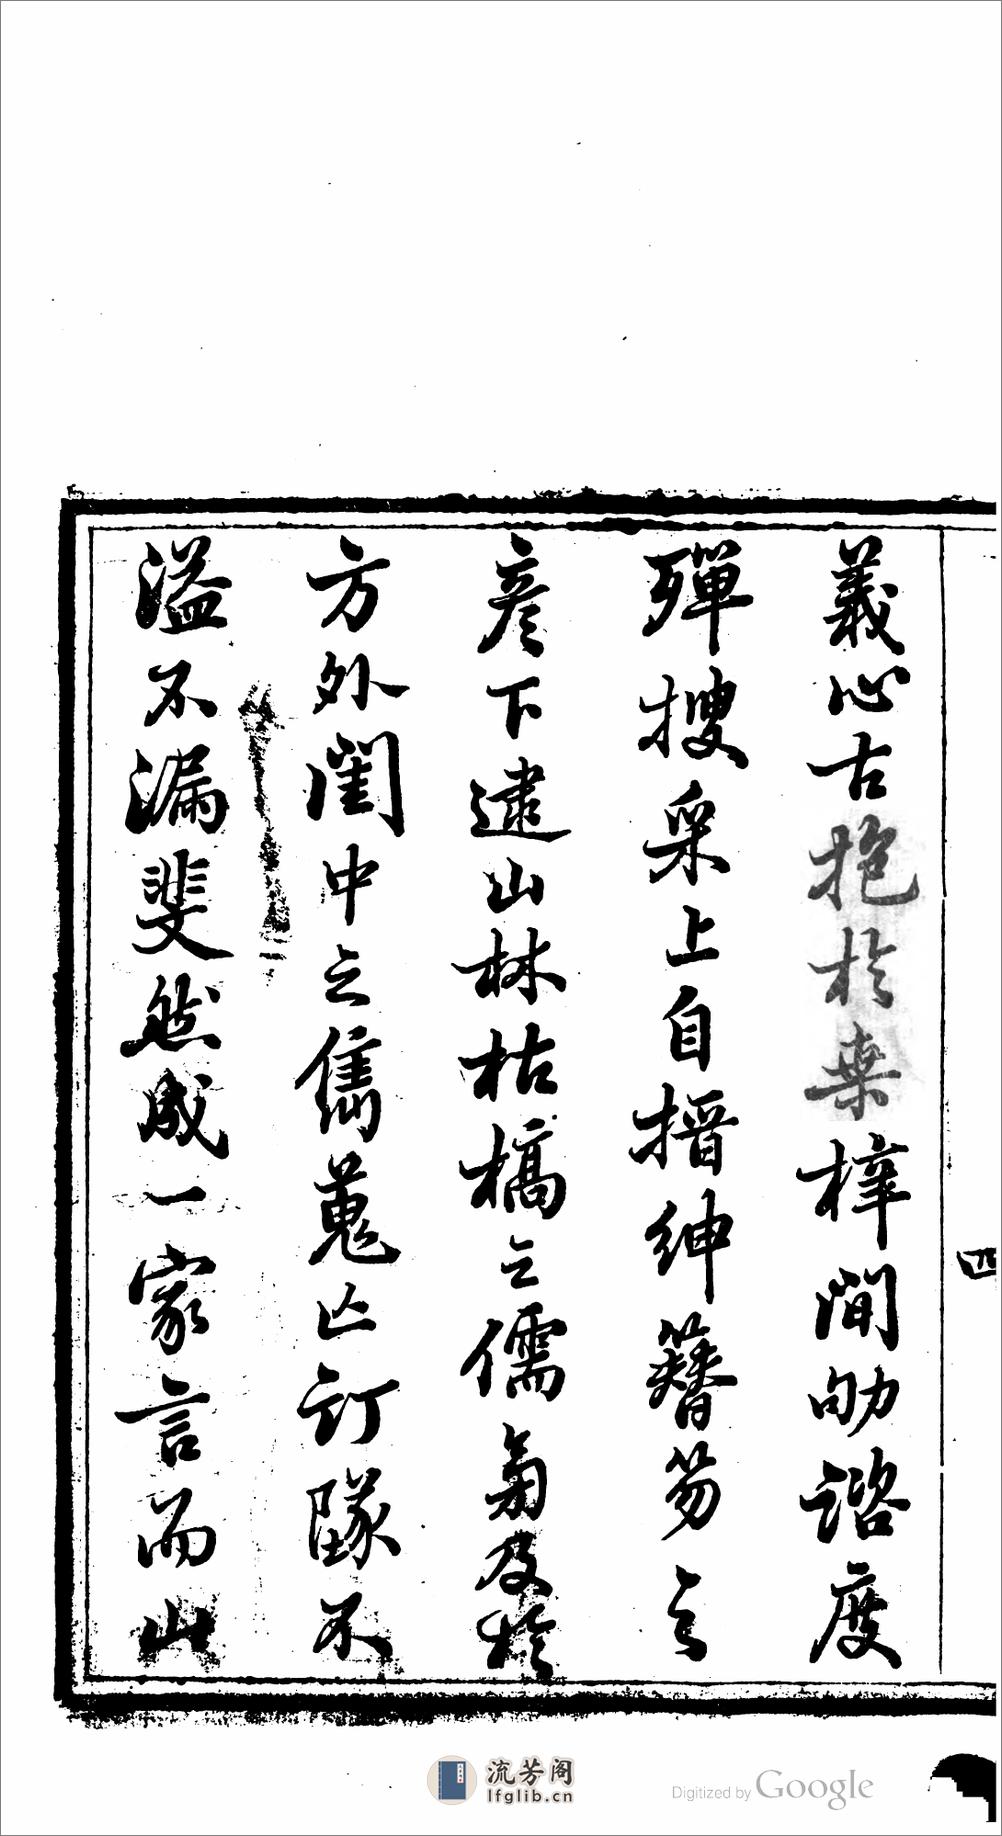 義心古抱於桑梓間劬諮度
殫搜采上自搢紳簪笏之
彥下逮山林枯槁之儒旁及於
方外閨中之雋蒐亡訂墜不
溢不漏斐然成一家言而山
四
流芳阁
lfglib.cn
Digitized by Google